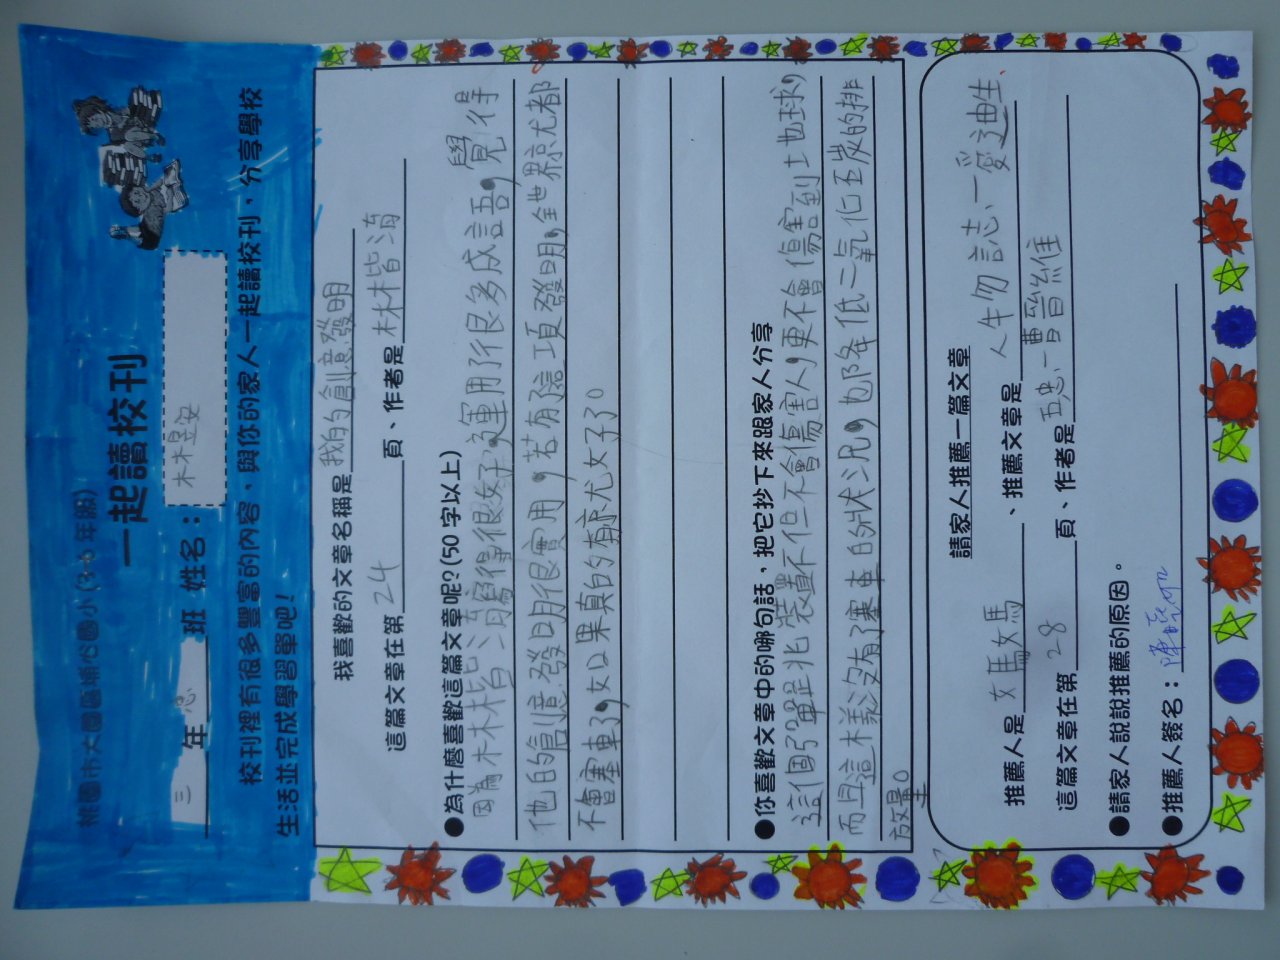 桃園市大園區埔心國小(3-6 年級)
一起讀校刊
三 年 忠 班 姓名： 林昱安
校刊裡有很多豐富的內容，與你的家人一起讀校刊，分享學校
生活並完成學習單吧！
我喜歡的文章名稱是 我的創意發明
這篇文章在第 24 頁、作者是 林楷海
●為什麼喜歡這篇文章呢?(50 字以上)
因為林楷海寫得很好，運用了很多成語，覺得
他的創意發明很實用，若有這項發明，全世界就都
不會塞車了，如果真的有就太好了。
●你喜歡文章中的哪句話，把它抄下來跟家人分享
這個了單兆裝置不但不會傷害人，更不會傷害到土地球，
而且這樣沒有了塞車的狀況，也降低二氧化碳的排
放量。
請家人推薦一篇文章
推薦人是 媽媽 、推薦文章是 人物誌-愛迪生
這篇文章在第 28 頁、作者是 五忠-曹晉維
●請家人說說推薦的原因。
●推薦人簽名：